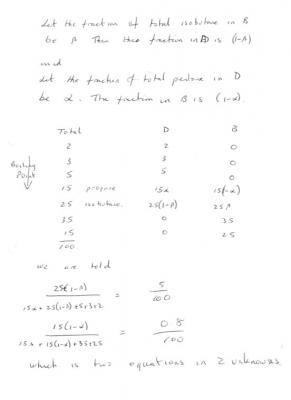 Let the fraction of total isobutane in B
be β Then the fraction in D is (1-β)
and
Let the fraction of total pentane in D
be α. The fraction in B is (1-α).
Total D B
2 2 0
3 3 0
Boiling Point 5 5 0
15 propane 15α 15(1-α)
25 isobutane. 25(1-β) 25β
35 0 35
15 0 25
100
we are told
25(1-β) / 15α + 25(1-β)+5+3+2 = 5/100
15(1-α) / 15α + 15(1-α)+35+25 = 0.8/100
which is two equations in 2 unknowns